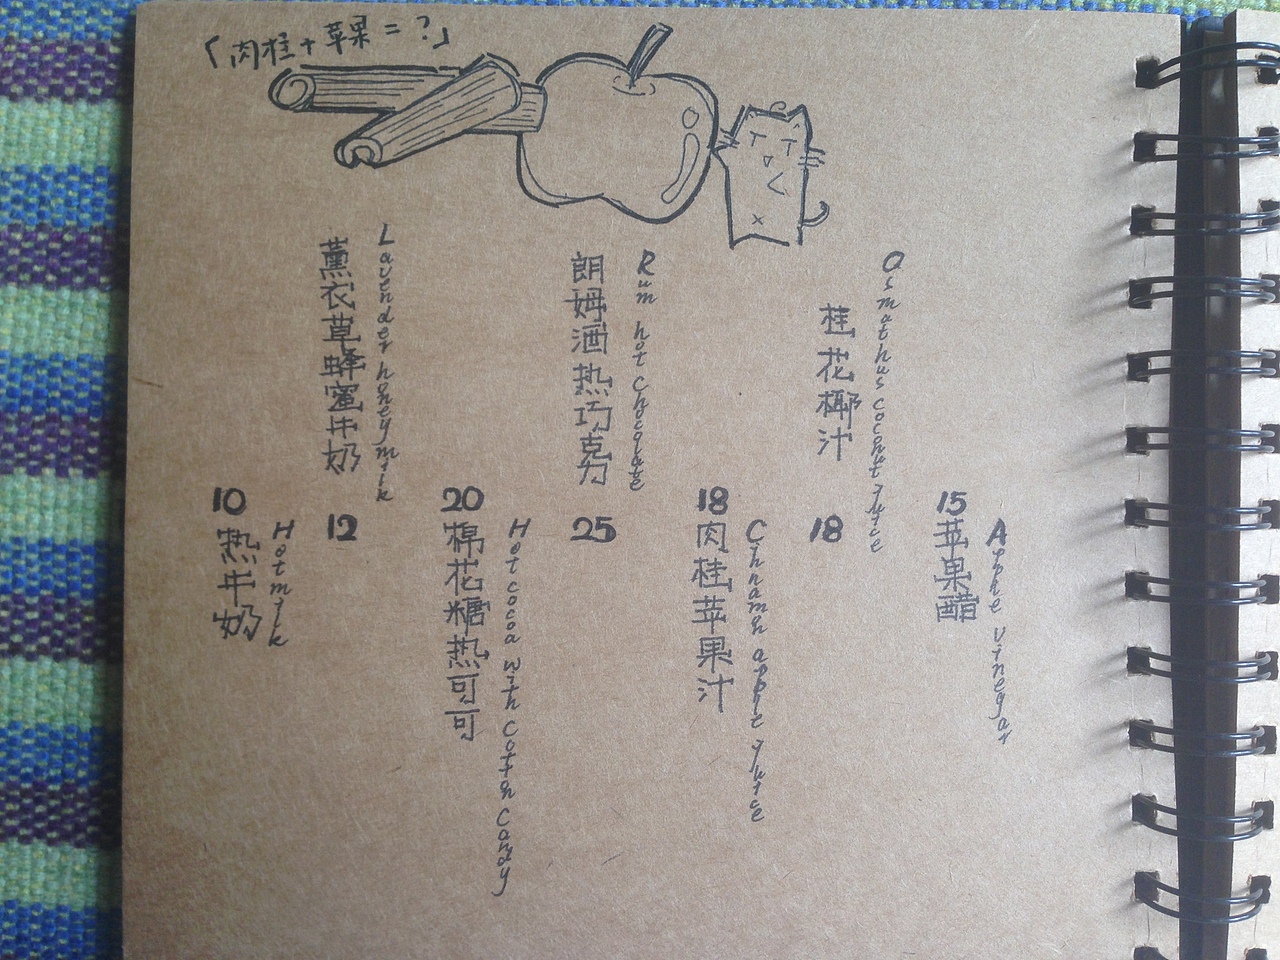 「肉桂+苹果=?」
Apple vinegar
苹果醋
15
Osmathus coconut juice
桂花椰汁
18
Cinnamn apple juice
肉桂苹果汁
18
Rum hot chocolate
朗姆酒热巧克力
25
Hot cocoa with Cotton Candy
棉花糖热可可
20
Lavender honey milk
薰衣草蜂蜜牛奶
12
Hot milk
热牛奶
10